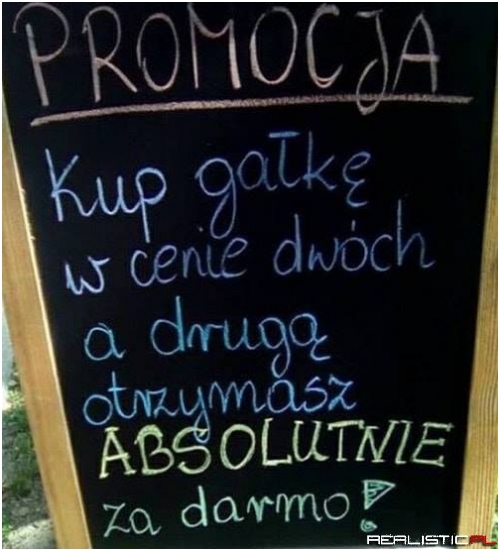 PROMOCJA
Kup gałkę
w cenie dwóch
a drugą
otrzymasz
ABSOLUTNIE
za darmo!
REALISTIC.PL